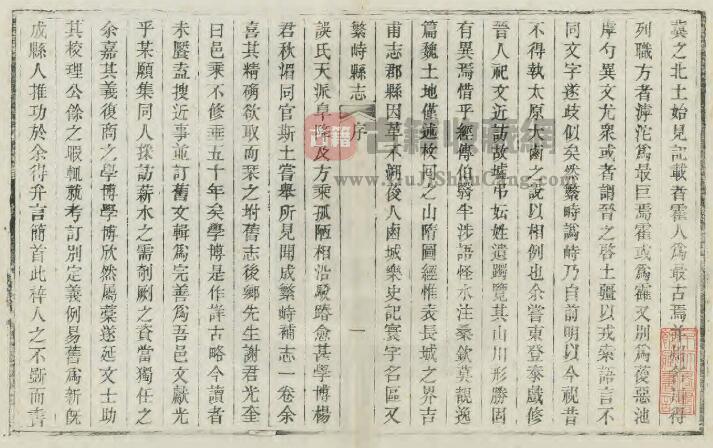 冀之北土始見記載者霍人爲最古焉
列職方者滹沱爲最巨焉霍或爲䨥又別爲葰惡池
虖勺異文尤衆或者謂晉之啓土疆以戎索語言不
同文字遂歧似矣然繁畤謂峙乃自前明以今視昔
不得執太原大鹵之說以相例也余嘗東登泰戲修
晉人祀文近訪故墟弔妘姓遺躅覽其山川形勝固
有異焉惜乎經傳伯翳半涉語怪水注桑欽莫覩逸
篇魏土地僅述枚回之山隋圖經惟表長城之界吉
甫志郡縣因革不朔後人鹵城樂史記寰宇名區又
繁峙縣志 序 一
誤氏天派阜 及方乘孤陋相沿駮踳愈甚學博楊
君秋湄同官斯土嘗舉所見聞成繁峙補志一卷余
喜其精確欲取而栞之坿舊志後鄉先生謝君光奎
曰邑乘不修垂五十年矣學博是作詳古略今讀者
未饜盍搜近事並訂舊文輯爲完善爲吾邑文獻光
乎某願集同人採訪薪水之需剞劂之資當獨任之
余嘉其義復商之學博學博欣然屬藁遂延文士助
其校理公餘之暇輒就考訂別定義例易舊爲新旣
成縣人推功於余得弁言簡首此梓人之不斲而書
古籍收藏网
www.GuJiShouCang.com